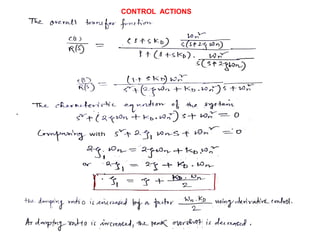 CONTROL ACTIONS
The overall transfer function
C(s)/R(s) = ((1+sK_D) ω_n²/(s(s+2ζω_n))) / (1+(1+sK_D). ω_n²/(s(s+2ζω_n)))
C(s)/R(s) = ((1+sK_D)ω_n²) / (s²+(2ζω_n+K_D.ω_n²)s+ω_n²)
The characteristic equation of the system
s²+(2ζω_n+K_D.ω_n²)s+ω_n² = 0
Comparing with s²+2ζ₁ω_n s+ω_n² = 0
2ζ₁ω_n = 2ζω_n+K_D.ω_n²
or 2ζ₁ = 2ζ+K_D.ω_n
∴ ζ₁ = ζ + K_D.ω_n/2
the damping ratio is increased by a factor ω_n.K_D/2 using derivative control.
As damping ratio is increased, the peak overshoot is decreased.